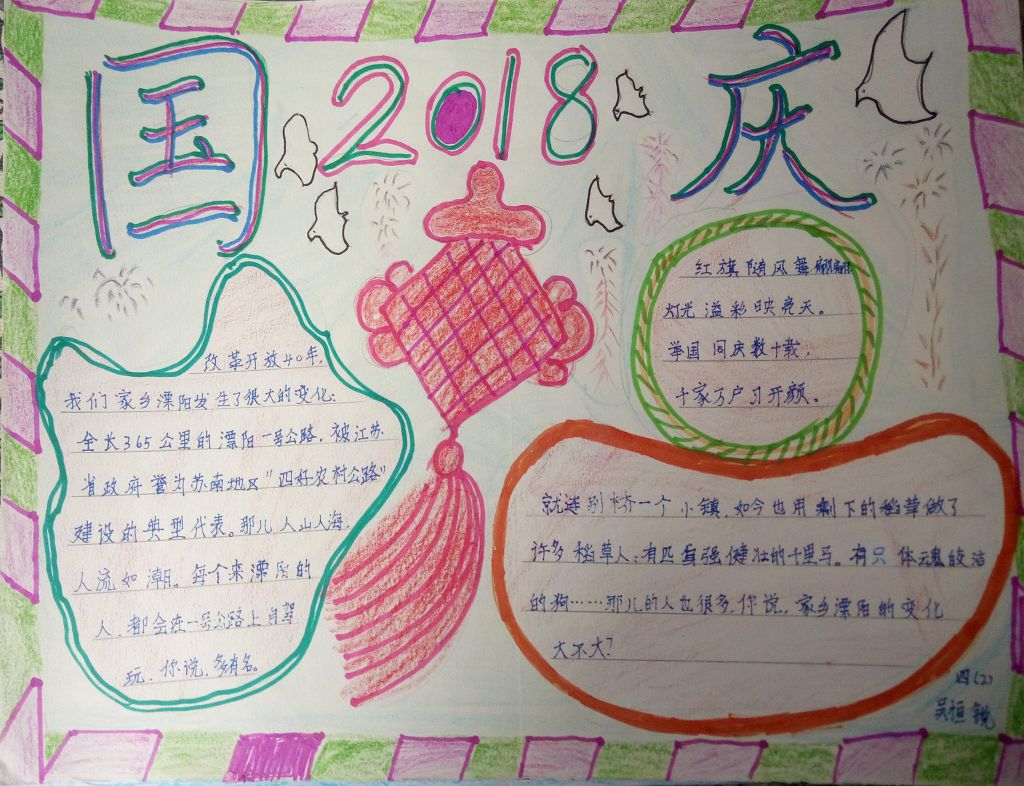 国2018庆
改革开放40年,
我们家乡溧阳发生了很大的变化:
全长365公里的溧阳一号公路,被江苏
省政府誉为苏南地区"四好农村公路"
建设的典型代表。那儿人山人海,
人流如潮。每个来溧阳的
人,都会在一号公路上自驾
玩,你说,多有名。
红旗随风舞翩翩
灯光溢彩映亮天。
举国同庆数十载,
千家万户习开颜。
就连别桥一个小镇,如今也用剩下的稻草做了
许多稻草人:有匹身强健壮的千里马。有只体态皎洁
的狗……那儿的人也很多,你说,家乡溧阳的变化
大不大?
四(2)
吴恒锐